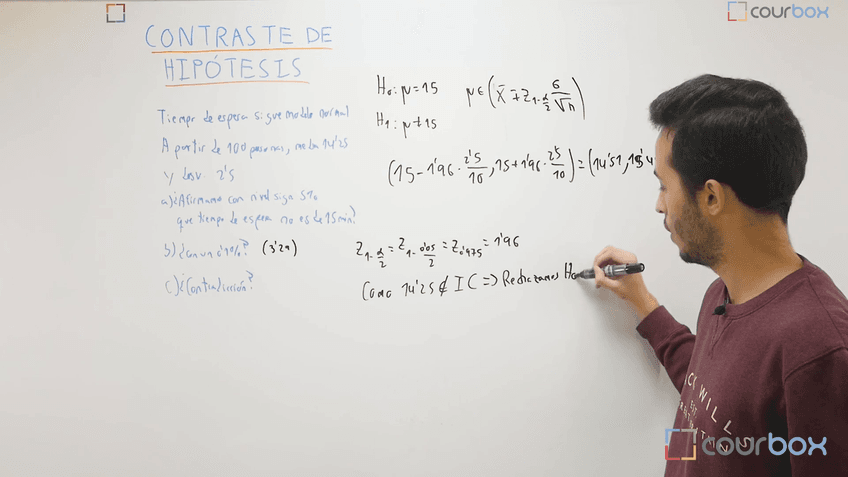 courbox
CONTRASTE DE
HIPÓTESIS
Tiempo de espera sigue modelo normal
A partir de 100 personas, media 14'25
y desv. 2'5
a) ¿Afirmamos con nivel sign 5%
que tiempo de espera no es de 15 min?
b) ¿Con un 0'10%? (3'29)
c) ¿Contradicción?
H₀: μ=15 μ∈(x̄ ∓ Z₁₋α/2 σ/√n)
H₁: μ≠15
(15-1'96·2'5/10, 15+1'96·2'5/10) = (14'51, 15'4
Z₁₋α/2 = Z₁₋0'05/2 = Z₀'975 = 1'96
Como 14'25 ∉ IC ⇒ Rechazamos H₀
CK WILL
EST
courbox